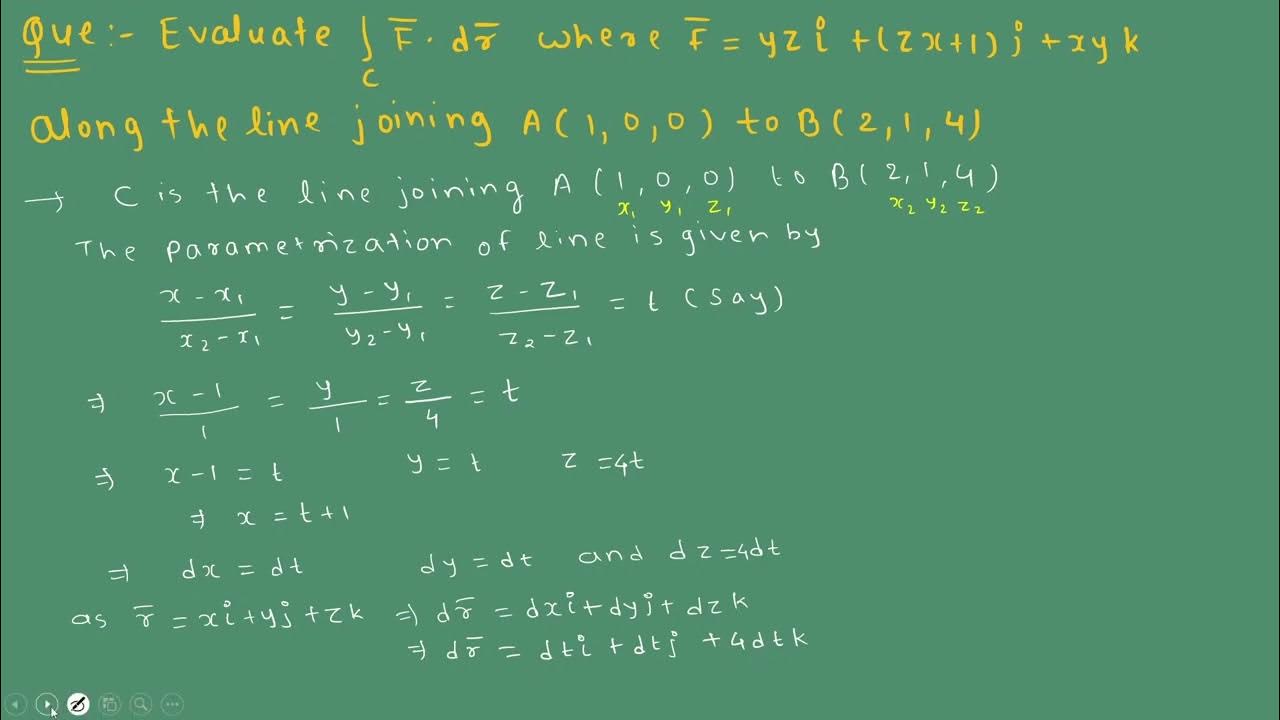 Que:- Evaluate ∫_C F̅ · dr̅ where F̅ = yz i + (zx+1) j + xy k
along the line joining A(1,0,0) to B(2,1,4)
→ C is the line joining A(1,0,0) to B(2,1,4)
x₁ y₁ z₁ x₂ y₂ z₂
The parametrization of line is given by
(x - x₁)/(x₂ - x₁) = (y - y₁)/(y₂ - y₁) = (z - z₁)/(z₂ - z₁) = t (say)
⇒ (x - 1)/1 = y/1 = z/4 = t
⇒ x - 1 = t y = t z = 4t
⇒ x = t + 1
⇒ dx = dt dy = dt and dz = 4dt
as r̅ = xi + yj + zk ⇒ dr̅ = dxi + dyj + dzk
⇒ dr̅ = dti + dtj + 4dtk